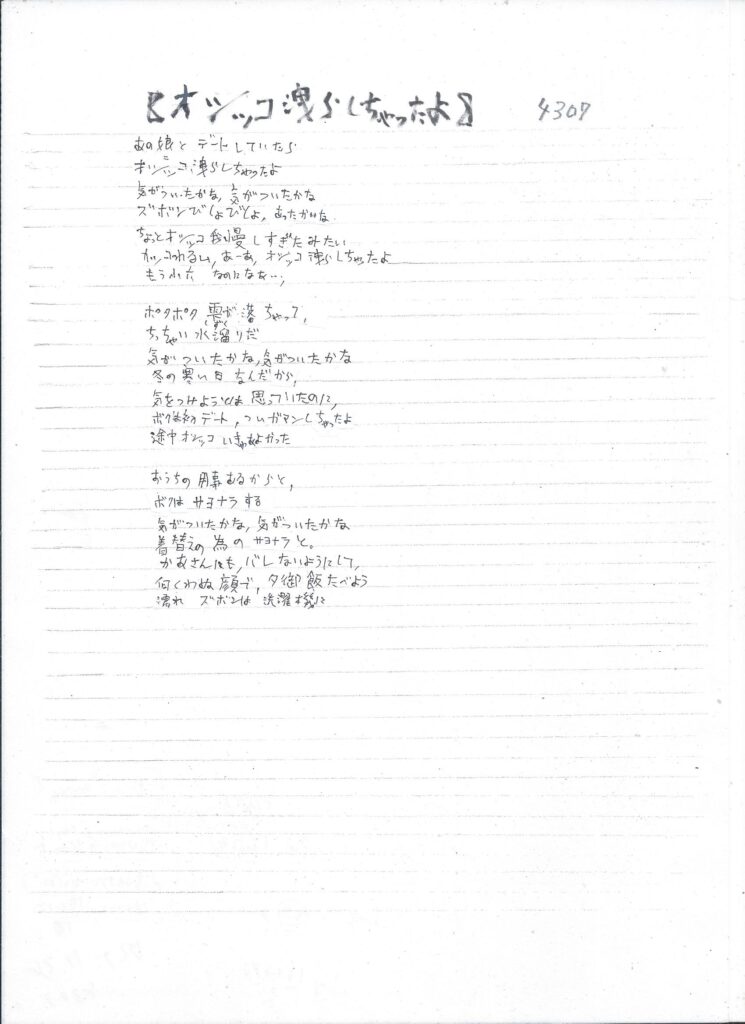 【オシッコ洩らしちゃったよ】 4307
あの娘と デートしていたら
オシッコ洩らしちゃったよ
気がついたかな, 気がついたかな
ズボンびしょびしょ, あったかいな
ちょっとオシッコ我慢しすぎたみたい
カッコわるい, あーあ, オシッコ洩らしちゃったよ
もう小六 なのになあ…,
ポタポタ 雫が落ちゃって,
しずく
ちっちゃい水溜りだ
気がついたかな, 気がついたかな
冬の寒い日なんだから,
気をつみようとは思っていたのに,
ボクは初デート, ついガマンしちゃったよ
途中オシッコいきゃぁよかった
おうちの用事あるからと,
ボクは サヨナラする
気がついたかな, 気がついたかな
着替えの為の サヨナラと。
かあさんにも, バレないようにして,
何くわぬ顔で, 夕御飯たべよう
濡れ ズボンは 洗濯機に